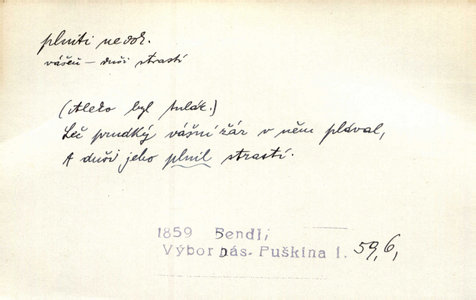 plniti nedok.
vášeň – duši strastí
(Aleko byl tulák.)
Leč prudký vášní žár v něm plával,
A duši jeho plnil strastí.
1859 Bendl,
Výbor bás. Puškina I. 59,6,